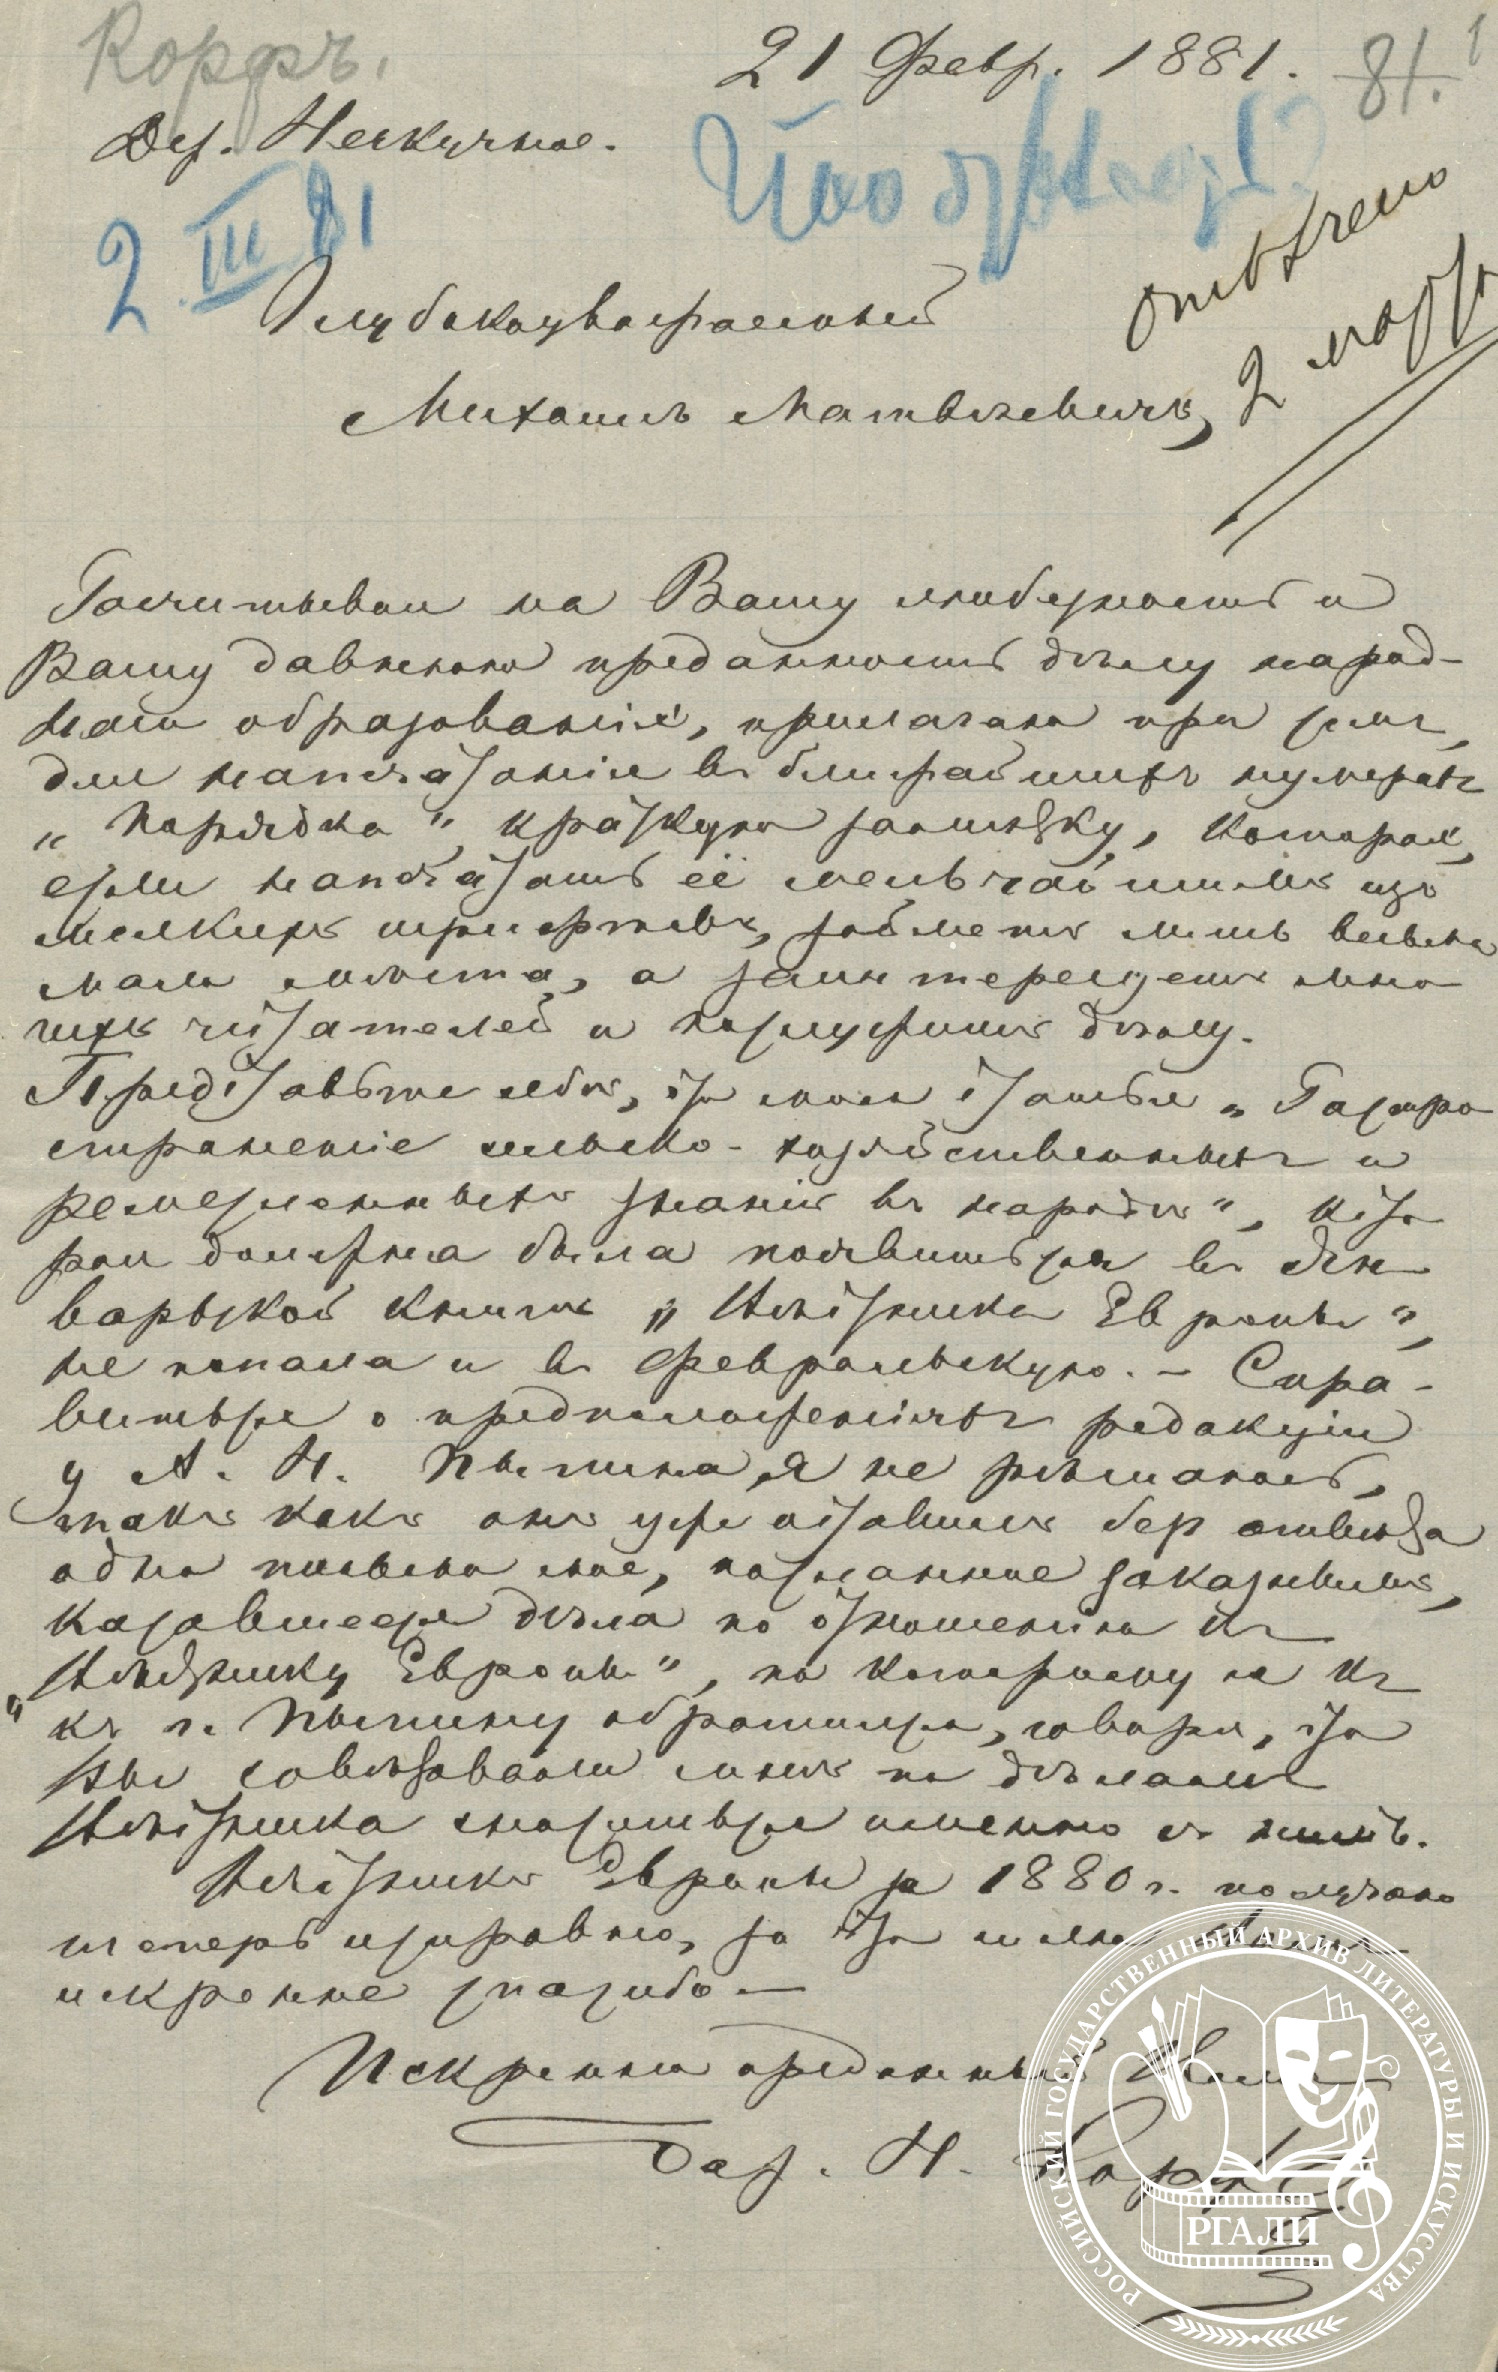 Корфъ.
21 Февр. 1881.
81. 1
Дер. Нескучное.
2 III 81
отвѣчено
2 марта
Глубокоуважаемый
Михаилъ Матвѣевичъ,
Расчитывая на Вашу любезность и
Вашу давнюю преданность дѣлу народ-
наго образованія, прилагаю при семъ,
для напечатанія въ ближайшихъ нумерахъ
„Порядка", краткую замѣтку, которая,
если напечатать её мельчайшимъ изъ
мелкихъ шрифтовъ, займетъ лишь весьма
мало мѣста, а заинтересуетъ мно
гихъ читателей и послужитъ дѣлу.
Представьте себѣ, что моя статья „Распро
страненіе сельско-хозяйственныхъ и
ремесленныхъ знаній въ народѣ", кото
рая должна была появиться въ Ян
варьской книгѣ „Вѣстника Европы",
не попала и въ февральскую. – Спра-
виться о предположеніяхъ редакціи
у А. Н. Пыпина я не рѣшаюсь,
такъ какъ онъ уже оставилъ безъ отвѣта
одно письмо мое, посланное заказнымъ,
касавшееся дѣла по отношенію къ
„Вѣстнику Европы", по которому я и
къ г. Пыпину обратился, говоря, что
Вы совѣтовали мнѣ по дѣламъ
Вѣстника сноситься именно съ нимъ.
Вѣстникъ Европы за 1880 г. получаю
теперь исправно, за что и шлю Вамъ
искреннее спасибо –
Искренно преданный Вамъ
Бар. Н. Корфъ
РОССИЙСКИЙ ГОСУДАРСТВЕННЫЙ АРХИВ ЛИТЕРАТУРЫ И ИСКУССТВА
РГАЛИ